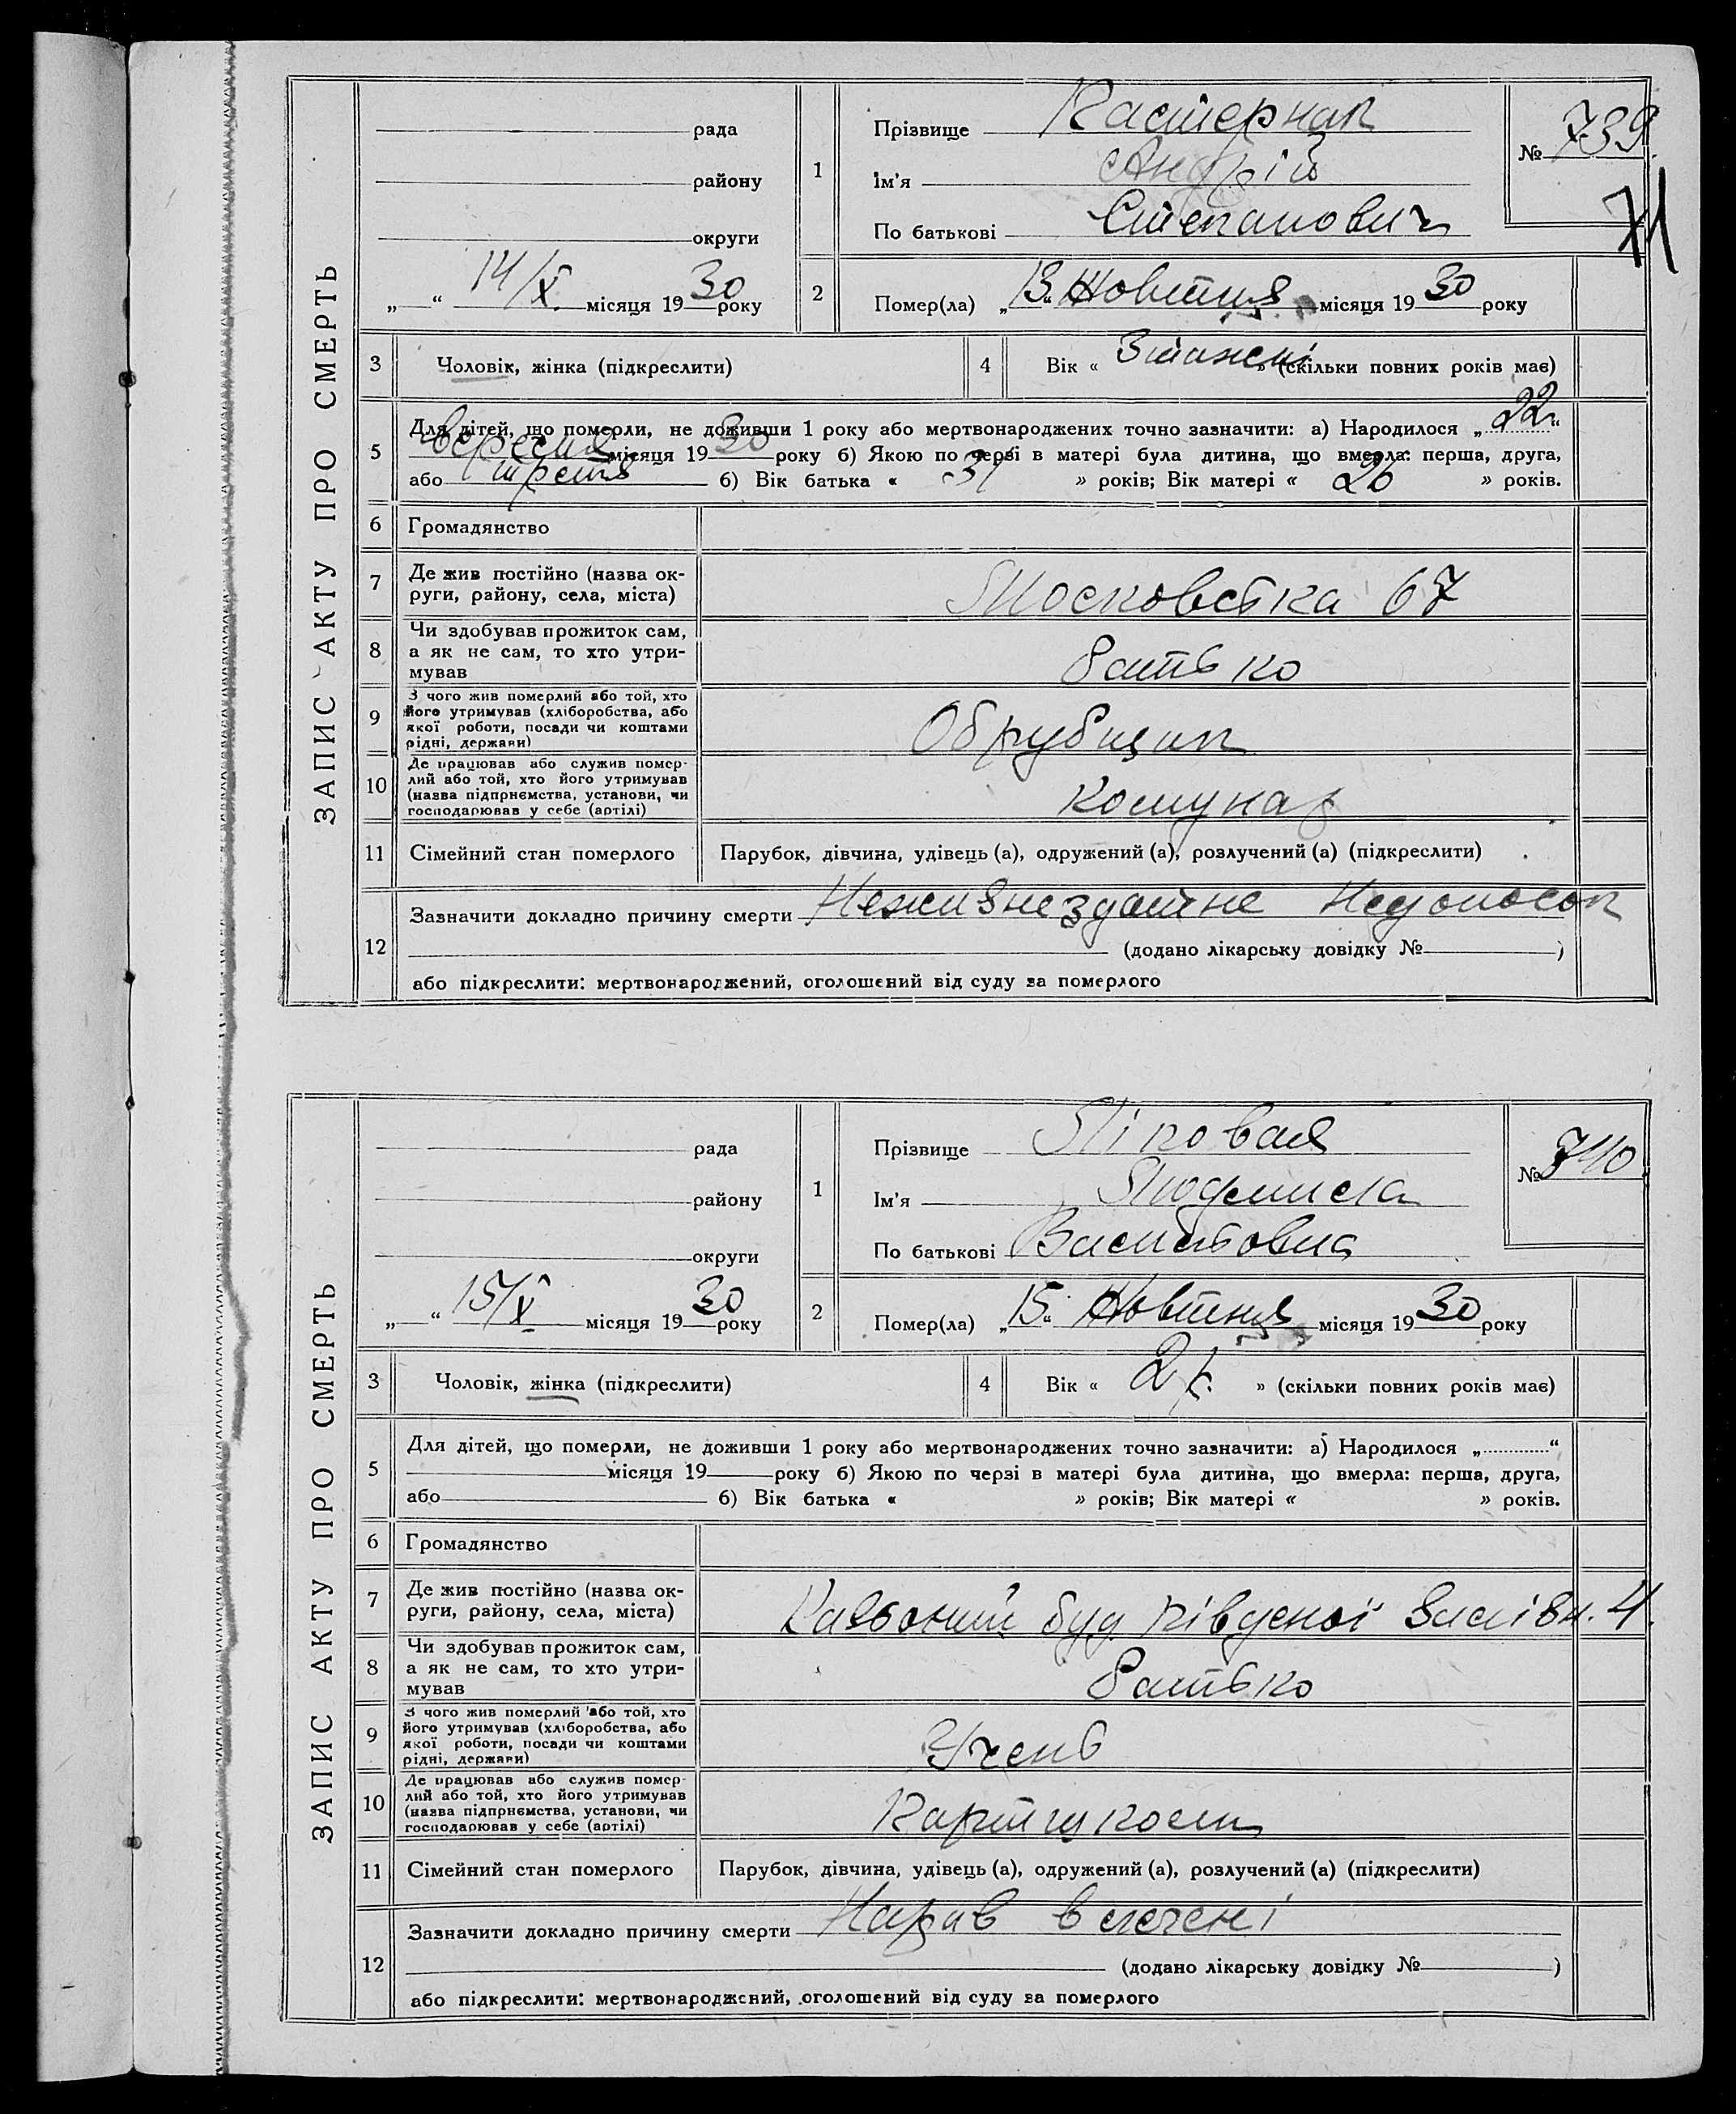 ЗАПИС АКТУ ПРО СМЕРТЬ
рада
району
округи
„ “ 14/X місяця 1930 року
1
Прізвище Кастернак
Ім'я Андрій
По батькові Степанович
№ 739.
71
2
Помер(ла) „13“ Жовтня місяця 1930 року
3 Чоловік, жінка (підкреслити)
4 Вік « 3 тижні » (скільки повних років має)
5 Для дітей, що померли, не доживши 1 року або мертвонароджених точно зазначити: а) Народилося „22“
вересня місяця 1930 року б) Якою по черзі в матері була дитина, що вмерла: перша, друга,
або третя б) Вік батька « 31 » років; Вік матері « 26 » років.
6 Громадянство
7 Де жив постійно (назва ок-
руги, району, села, міста)
Московська 67
8 Чи здобував прожиток сам,
а як не сам, то хто утри-
мував
Батько
9 З чого жив померлий або той, хто
його утримував (хліборобства, або
якої роботи, посади чи коштами
рідні, держави)
Обрубщик
10 Де працював або служив помер-
лий або той, хто його утримував
(назва підприємства, установи, чи
господарював у себе (артілі)
Комунар
11 Сімейний стан померлого
Парубок, дівчина, удівець (а), одружений (а), розлучений (а) (підкреслити)
12 Зазначити докладно причину смерти Нежизнездатне Недоносок
(додано лікарську довідку № )
або підкреслити: мертвонароджений, оголошений від суду за померлого
ЗАПИС АКТУ ПРО СМЕРТЬ
рада
району
округи
„ “ 15/X місяця 1930 року
1
Прізвище Піковая
Ім'я Людмила
По батькові Васильовна
№ 740
2
Помер(ла) „15“ Жовтня місяця 1930 року
3 Чоловік, жінка (підкреслити)
4 Вік « 2 р. » (скільки повних років має)
5 Для дітей, що померли, не доживши 1 року або мертвонароджених точно зазначити: а) Народилося „ “
місяця 19 року б) Якою по черзі в матері була дитина, що вмерла: перша, друга,
або б) Вік батька « » років; Вік матері « » років.
6 Громадянство
7 Де жив постійно (назва ок-
руги, району, села, міста)
буд Південої 4
8 Чи здобував прожиток сам,
а як не сам, то хто утри-
мував
Батько
9 З чого жив померлий або той, хто
його утримував (хліборобства, або
якої роботи, посади чи коштами
рідні, держави)
Учень
10 Де працював або служив помер-
лий або той, хто його утримував
(назва підприємства, установи, чи
господарював у себе (артілі)
11 Сімейний стан померлого
Парубок, дівчина, удівець (а), одружений (а), розлучений (а) (підкреслити)
12 Зазначити докладно причину смерти Нарив в печені
(додано лікарську довідку № )
або підкреслити: мертвонароджений, оголошений від суду за померлого